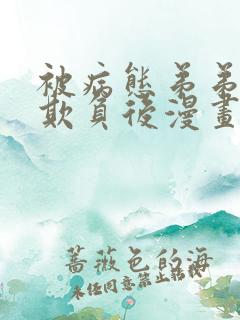 被病態弟弟
欺負後漫畫
薔薇色的海
未任同意禁止轉載